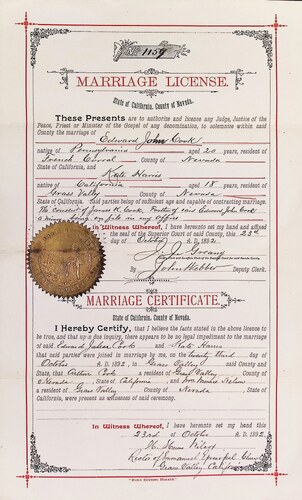 No. 1159
MARRIAGE LICENSE.
State of California, County of Nevada.
These Presents are to authorize and license any Judge, Justice of the
Peace, Priest or Minister of the Gospel of any denomination, to solemnize within said
County the marriage of Edward John Cork
native of Pennsylvania aged 20 years, resident of
French Corral County of Nevada
State of California, and
Kate Harris
native of California aged 18 years, resident of
Grass Valley County of Nevada
State of California. Said parties being of sufficient age and capable of contracting marriage.
The consent of James H. Cork, Father of said Edward John Cork
a minor being on file in my office
In Witness Whereof, I have hereunto set my hand and affixed
the seal of the Superior Court of said County, this 22d
day of October A. D. 1892
J. J.
By John Webber Deputy Clerk.
MARRIAGE CERTIFICATE.
State of California, County of Nevada.
I Hereby Certify, that I believe the facts stated in the above license to
be true, and that upon due inquiry, there appears to be no legal impediment to the marriage
of said Edward John Cork and Kate Harris
that said parties were joined in marriage by me, on the twenty third day of
October A. D. 1892, in Grass Valley said County and
State; that Arthur Cork a resident of Grass Valley County
of Nevada, State of California, and Mrs. Nelson
a resident of Grass Valley County of Nevada, State of
California, were present as witnesses of said ceremony.
In Witness Whereof, I have hereunto set my hand this
23rd of October A. D. 1892.
Rector of Emmanuel Episcopal Church
Grass Valley California